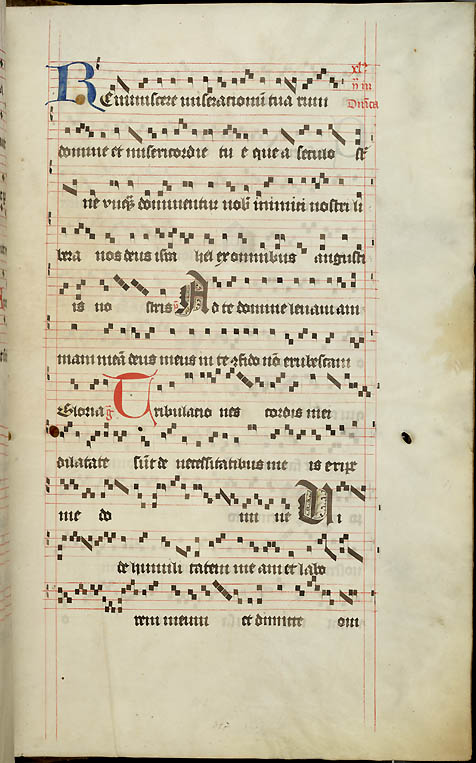 Reminiscere miserationum tuarum
domine et misericordie tu e que a seculo
ne unquam dominentur nobis inimici nostri li
bera nos deus isra hel ex omnibus angusti
is no stris Ad te domine levavi ani
mam meam deus meus in te confido non erubescam
Gloria Tribulatio nes cordis mei
dilatate sunt de necessitatibus me is eripe
me do mi ne Vi
de humili tatem me am et labo
rem meum et dimitte om